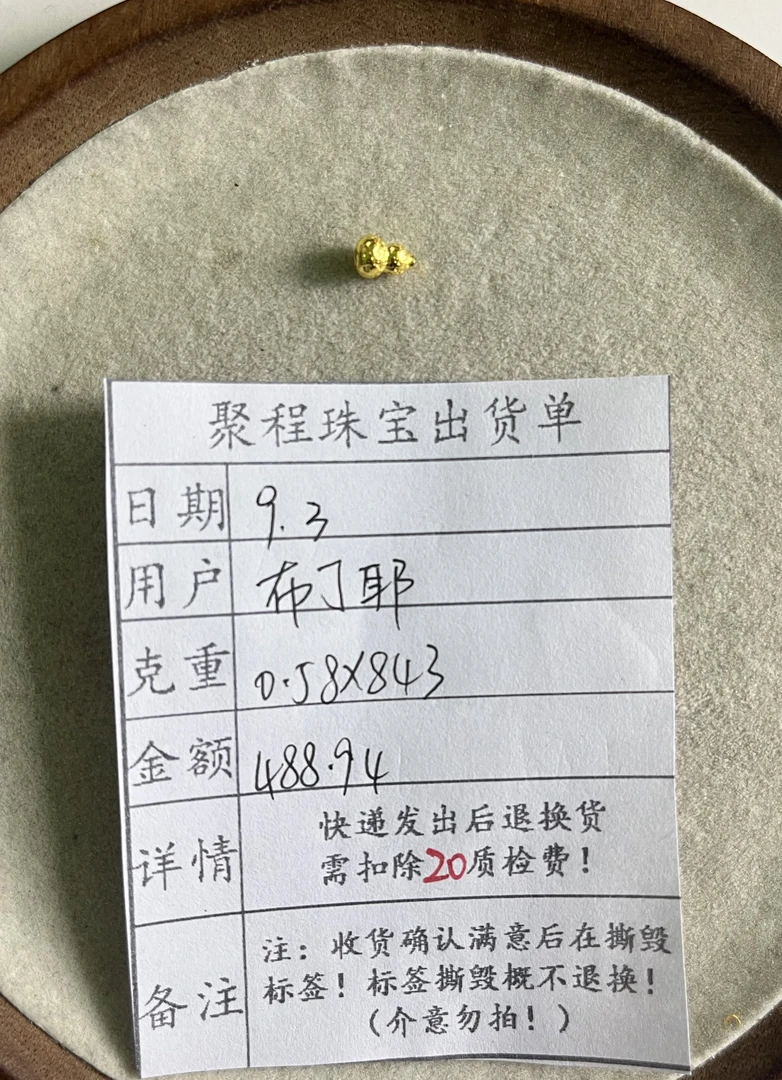 聚程珠宝出货单
日期 9.3
用户 布丁耶
克重 0.58X843
金额 488.94
详情 快递发出后退换货
需扣除20质检费!
备注 注:收货确认满意后在撕毁
标签!标签撕毁概不退换!
(介意勿拍!)